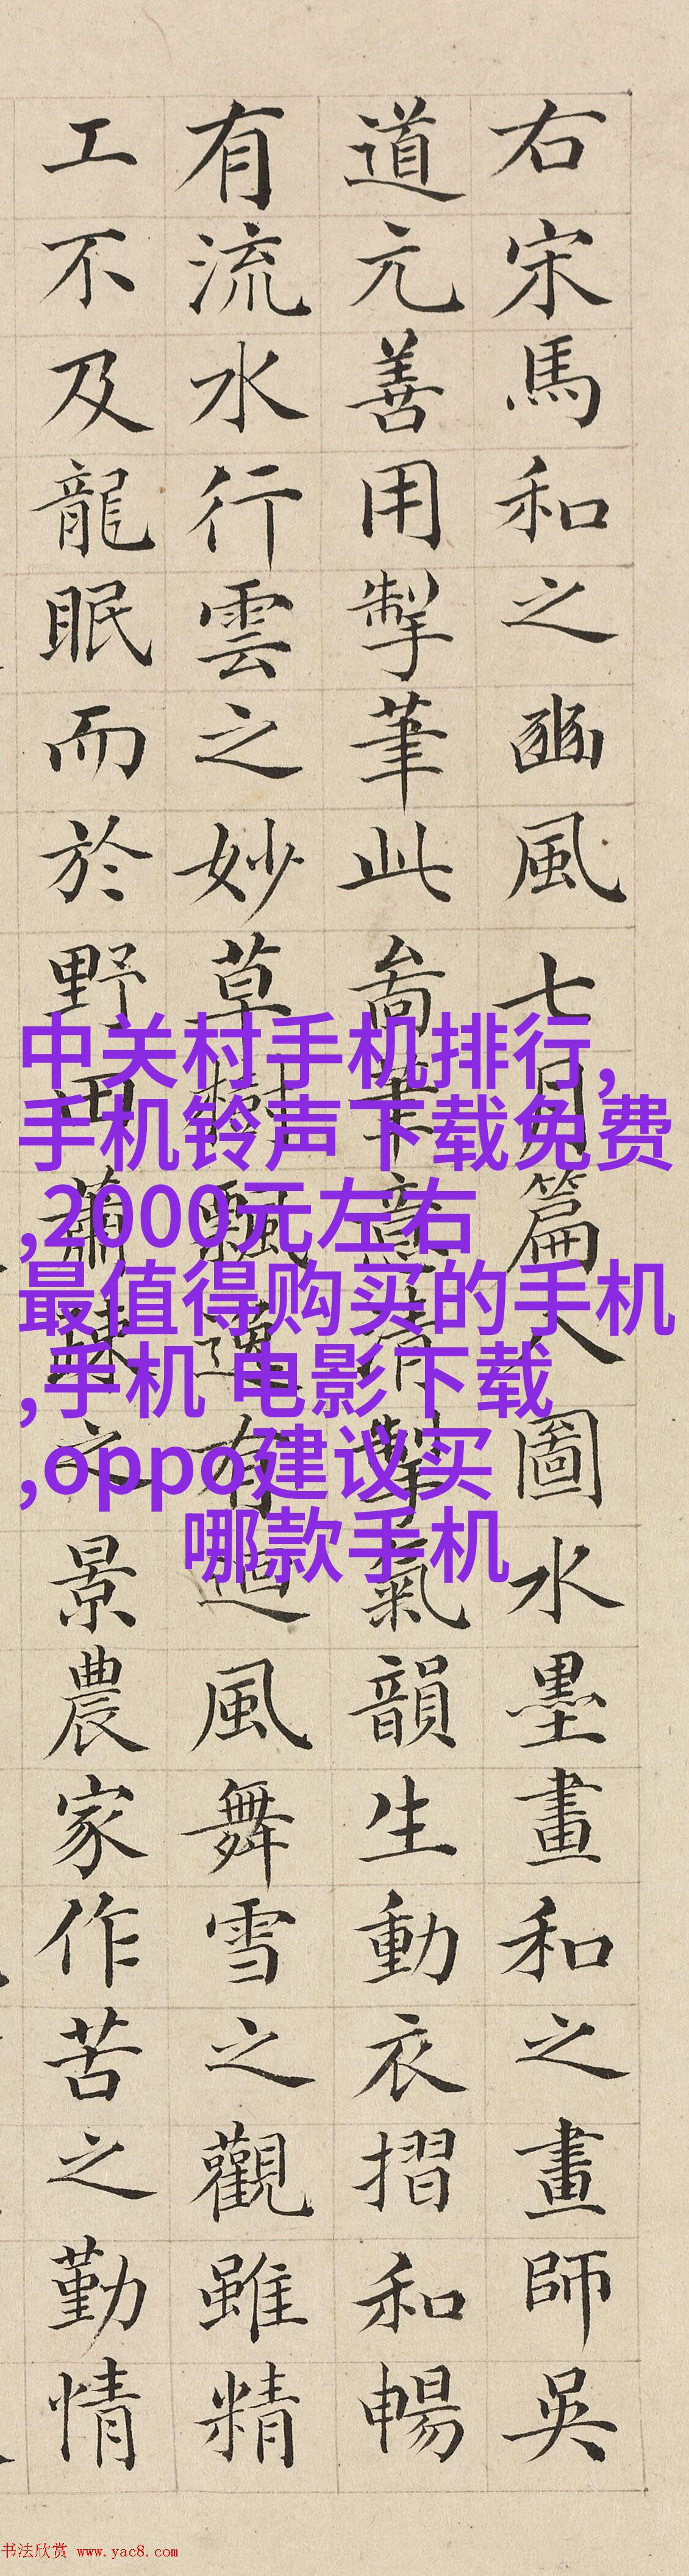 右宋馬和之豳風七月篇圖水墨畫和之畫師吳
道元善用掣筆此啚筆意清掣氣韻生動衣摺和暢
有流水行雲之妙草樹飄有迴風舞雪之觀雖精
工不及龍眠而於野田蕭疎之景農家作苦之勤情
中关村手机排行,
手机铃声下载免费
,2000元左右
最值得购买的手机
,手机 电影下载
,oppo建议买
哪款手机
书法欣赏 www.yac8.com